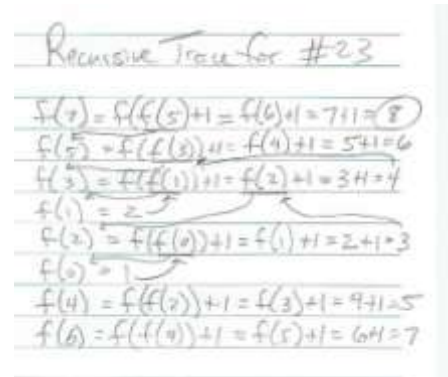 Recursive Trace for #23
f(7) = f(f(5)+1 = f(6)+1 = 7+1 = 8
f(5) = f(f(3))+1 = f(4)+1 = 5+1=6
f(3) = f(f(1))+1 = f(2)+1 = 3+1=4
f(1) = 2
f(2) = f(f(0))+1 = f(1)+1=2+1=3
f(0) = 1
f(4) = f(f(2))+1 = f(3)+1=4+1=5
f(6) = f(f(4))+1 = f(5)+1=6+1=7